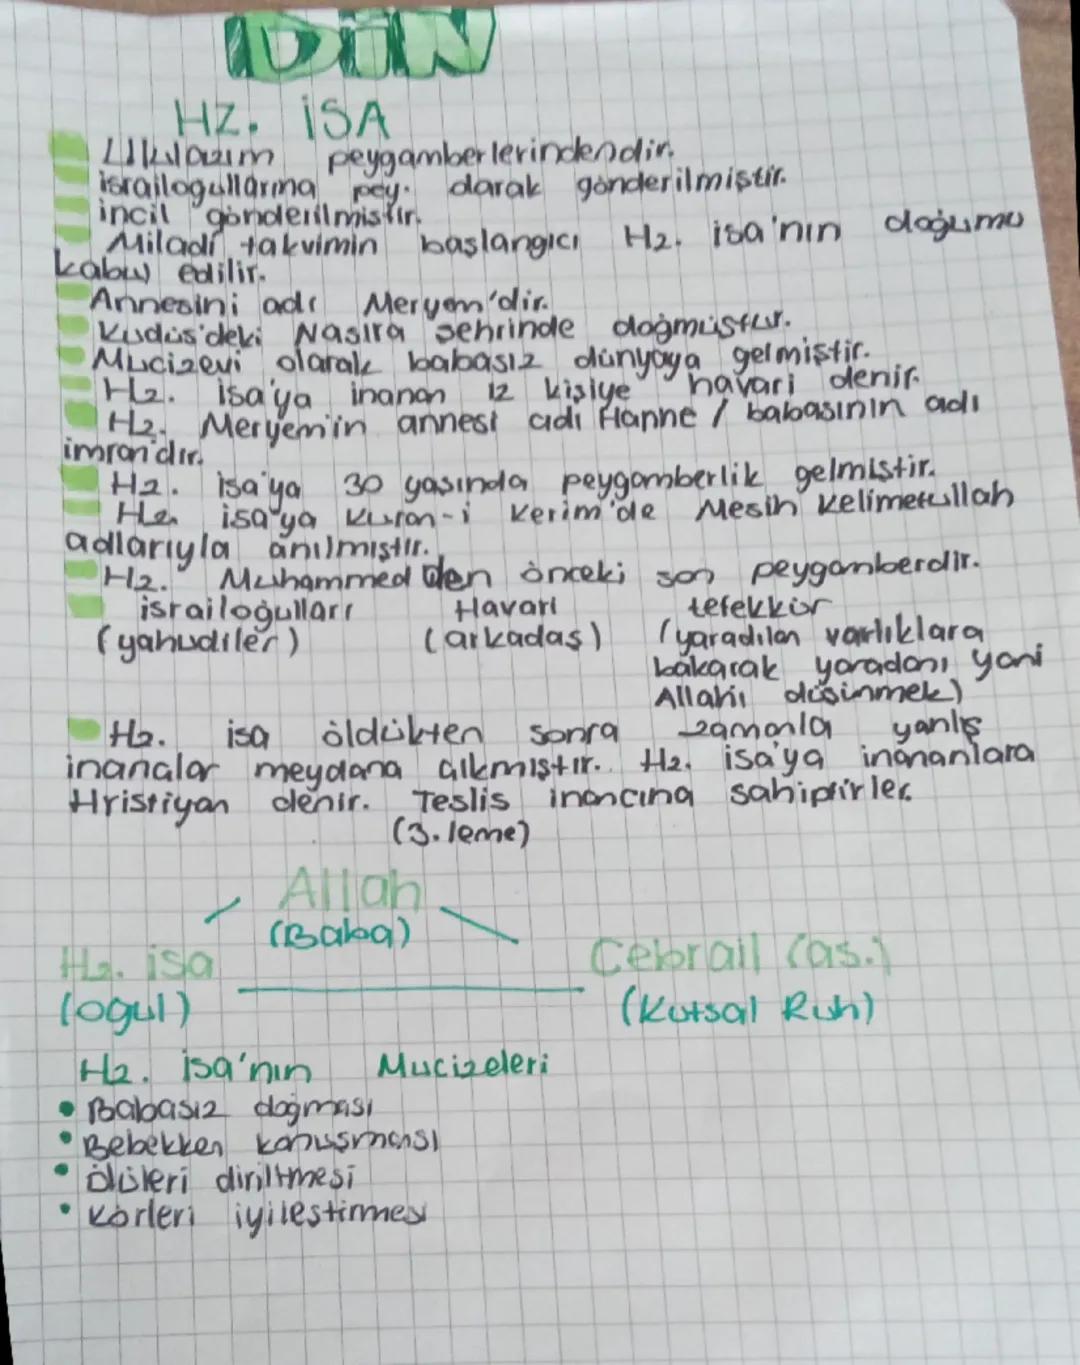 DİN
HZ. İSA
Ulülazim peygamberlerindendir.
israilogullarına pey. olarak gönderilmiştir.
incil gönderilmiştir.
Miladi takvimin başlangıcı Hz. isa'nın doğumu
kabul edilir.
Annesini adı Meryem'dir.
Kudüs'deki Nasıra şehrinde doğmuştur.
Mucizevi olarak babasız dünyaya gelmiştir.
Hz. isa'ya inanan 12 kişiye havari denir.
Hz. Meryem'in annesi adı Hanne / babasının adı
imran'dır.
Hz. isa'ya 30 yaşında peygamberlik gelmiştir.
Hz. isa'ya Kuran-i Kerim'de Mesih Kelimetullah
adlarıyla anılmıştır.
Hz. Muhammed'den önceki son peygamberdir.
israiloğulları Havari tefekkür
(yahudiler) (arkadaş) (yaradılan varlıklara
bakarak yaradanı yani
Allahı düşünmek)
Hz. isa öldükten sonra zamanla yanlış
inançlar meydana çıkmıştır. Hz. isa'ya inananlara
Hristiyan denir. Teslis inancına sahiptirler.
(3.leme)
Allah
(Baba)
Hz. isa Cebrail (as.)
(ogul) (Kutsal Ruh)
Hz. isa'nın Mucizeleri
• Babasız doğması
• Bebekken konuşması
• Ölüleri diriltmesi
• Körleri iyileştirmesi